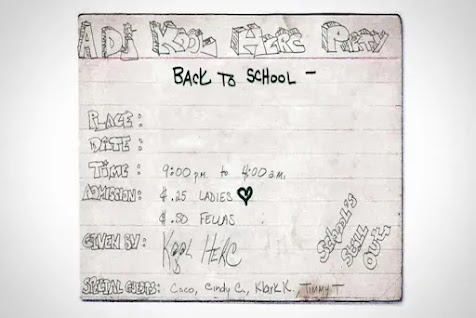 A DJ KOOL HERC PARTY
BACK TO SCHOOL -
PLACE:
DATE:
TIME: 9:00 p.m. to 4:00 a.m.
ADMISSION: $.25 LADIES
$.50 FELLAS
GIVEN BY: KOOL HERC
SPECIAL GUESTS: Coco, Cindy C., Klark K., Timmy T
SCHOOL'S
STILL
OUT.